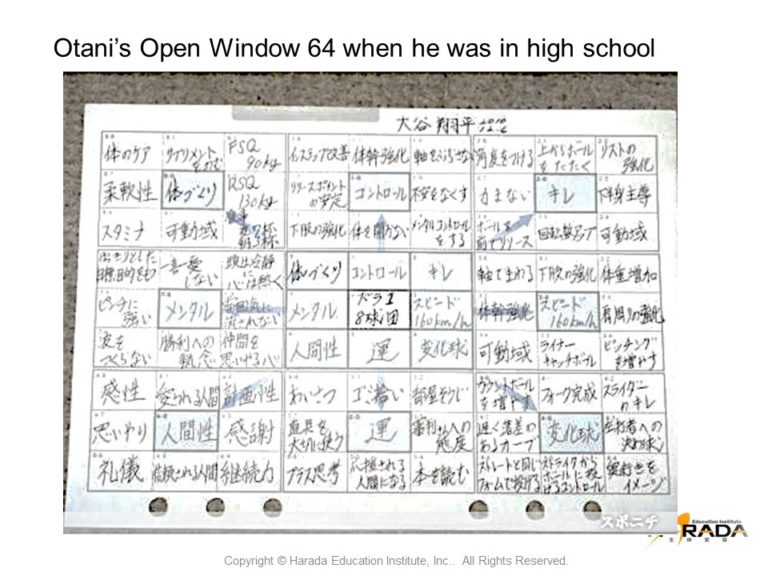 Otani's Open Window 64 when he was in high school
大谷 翔平
体のケア サプリメントをのむ FSQ 90kg インステップ改善 体幹強化 軸をぶらさない 角度をつける 上からボールをたたく リストの強化
柔軟性 体づくり RSQ 130kg リリースポイントの安定 コントロール 不安をなくす 力まない キレ 下半身主導
スタミナ 可動域 食事 夜7杯 朝3杯 下肢の強化 体を開かない メンタルコントロールをする ボールを前でリリース 回転数アップ 可動域
はっきりとした目標、目的をもつ 一喜一憂しない 頭は冷静に心は熱く 体づくり コントロール キレ 軸でまわる 下肢の強化 体重増加
ピンチに強い メンタル 雰囲気に流されない メンタル ドラ1 8球団 スピード 160km/h 体幹強化 スピード 160km/h 肩周りの強化
波をつくらない 勝利への執念 仲間を思いやる心 人間性 運 変化球 可動域 ライナーキャッチボール ピッチングを増やす
感性 愛される人間 計画性 あいさつ ゴミ拾い 部屋そうじ カウントボールを増やす フォーク完成 スライダーのキレ
思いやり 人間性 感謝 道具を大切に使う 運 審判さんへの態度 遅く落差のあるカーブ 変化球 左打者への決め球
礼儀 信頼される人間 継続力 プラス思考 応援される人間になる 本を読む ストレートと同じフォームで投げる ストライクからボールに投げるコントロール 奥行きをイメージ
スポニチ
Education Institute
RADA
Copyright © Harada Education Institute, Inc.. All Rights Reserved.